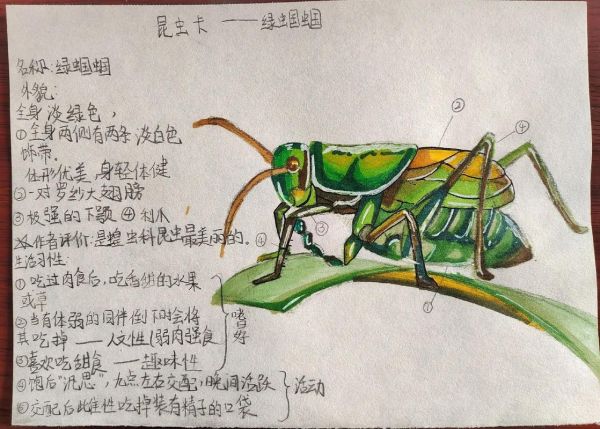 昆虫卡 ——绿蝈蝈
名称:绿蝈蝈
外貌:
全身淡绿色,
①全身两侧有两条淡白色
饰带.
体形优美,身轻体健
②一对罗纱大翅膀
③极强的下颚 ④利爪
作者评价:是蝗虫科昆虫最美丽的.
生活习性:
①吃过肉食后,吃香甜的水果
或草
②当有体弱的同伴倒下时会将
其吃掉——人文性(弱肉强食
③喜欢吃甜食——趣味性
④饱后“沉思”,九点左右交配,晚间活跃
⑤交配后雌性吃掉装有精子的口袋
嗜好
活动
②
④
③
④
①